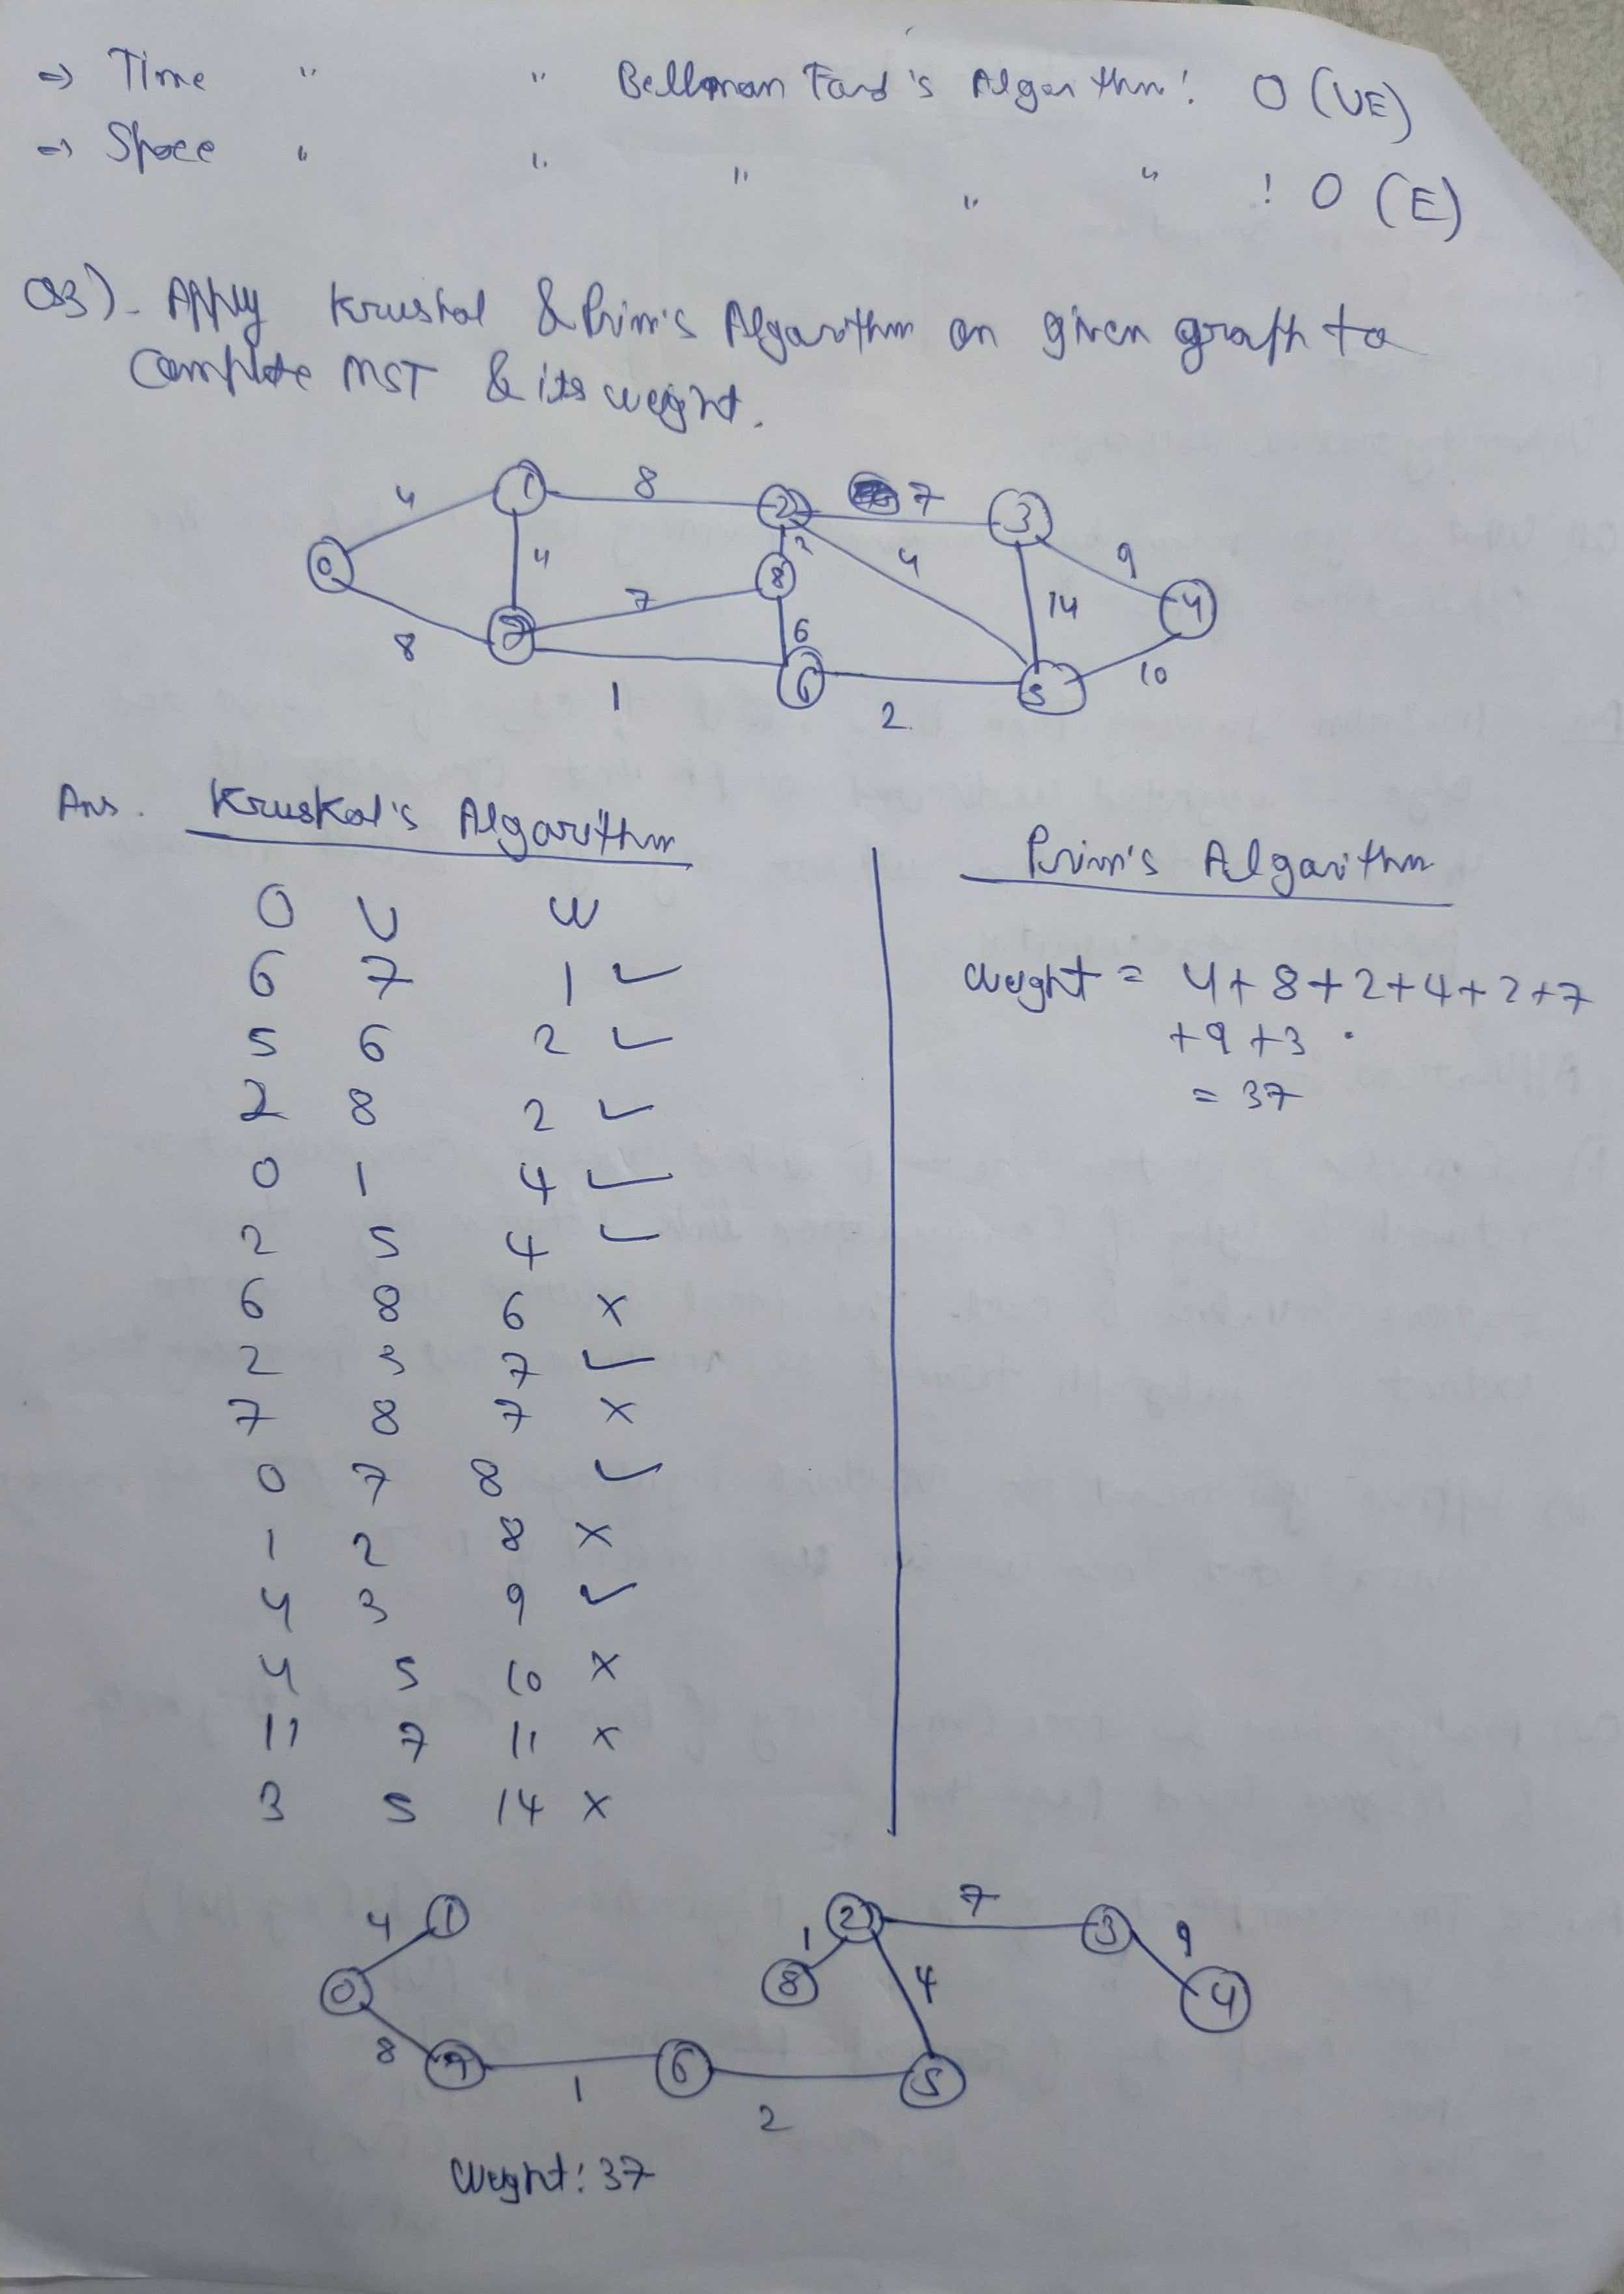 ⇒ Time " " Bellman Ford's Algorithm : O (VE)
⇒ Space " " " " " : O (E)
Q3)- Apply Kruskal & Prim's Algorithm on given graph to
Complete MST & its weight.
4 1 8 2 7 3
0 4 2 8 4 9
7 14 4
8 7 6 10
1 6 2 5
Ans. Kruskal's Algorithm
O U W
6 7 1 ✓
5 6 2 ✓
2 8 2 ✓
0 1 4 ✓
2 5 4 ✓
6 8 6 ×
2 3 7 ✓
7 8 7 ×
0 7 8 ✓
1 2 8 ×
4 3 9 ✓
4 5 10 ×
11 7 11 ×
3 5 14 ×
Prim's Algorithm
Weight = 4+8+2+4+2+7
+9+3
= 37
4 1 2 7 3 9
0 1 8 4 4
8 7 1 6 2 5
Weight: 37